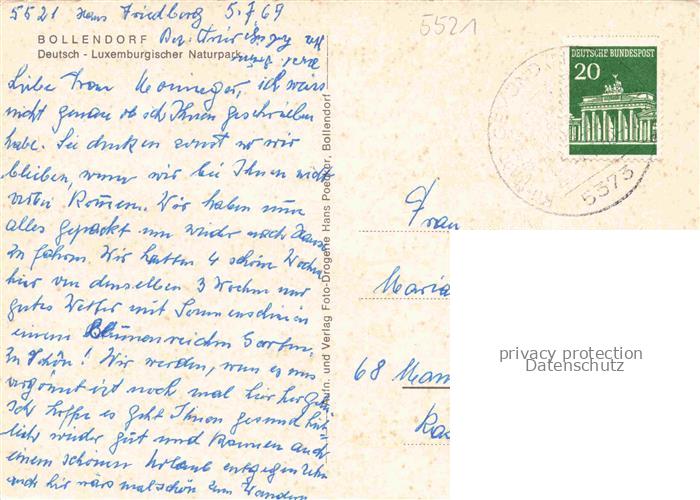 5521 Haus Friedberg 5.7.69
5521
BOLLENDORF
Deutsch - Luxemburgischer Naturpark
Liebe Frau ich weiss
nicht genau ob ich Ihnen geschrieben
habe. Sie denken sonst wo wir
bleiben, wenn wir bei Ihnen nicht
vorbei kommen. Wir haben nun
alles gepackt um wieder nach Hause
zu fahren. Wir hatten 4 schöne Wochen
hier von denselben 3 Wochen nur
gutes Wetter mit Sonnenschein in
einem Blumenreichen Garten,
zu schön! Wir werden, wenn es uns
vergönnt ist noch mal hier her
Ich hoffe es geht Ihnen gesundheit-
lich wieder gut und können auch
einem schönen Urlaub entgegen sehn
auch hier wärs mal schön zum Wandern
Aufn. und Verlag Foto-Drogerie Hans Poetker, Bollendorf
DEUTSCHE BUNDESPOST
20
5373
Frau
Maria
68 Mann
privacy protection
Datenschutz